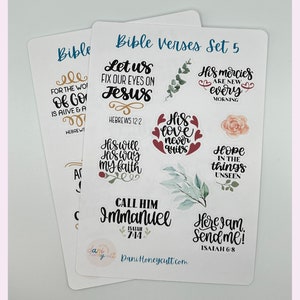 Bible Verses Set 5
Let us
FIX OUR EYES ON
Jesus
HEBREWS 12:2
His mercies
ARE NEW
every
MORNING
His
love
never
quits
His will
His way
my faith
HOPE
IN THE
things
UNSEEN
CALL HIM
Immanuel
ISAIAH
7:14
Here I am.
Send me!
ISAIAH 6:8
DaniHoneycutt.com
Bible
FOR THE WO
OF GO
IS ALIVE & A
HEBREWS